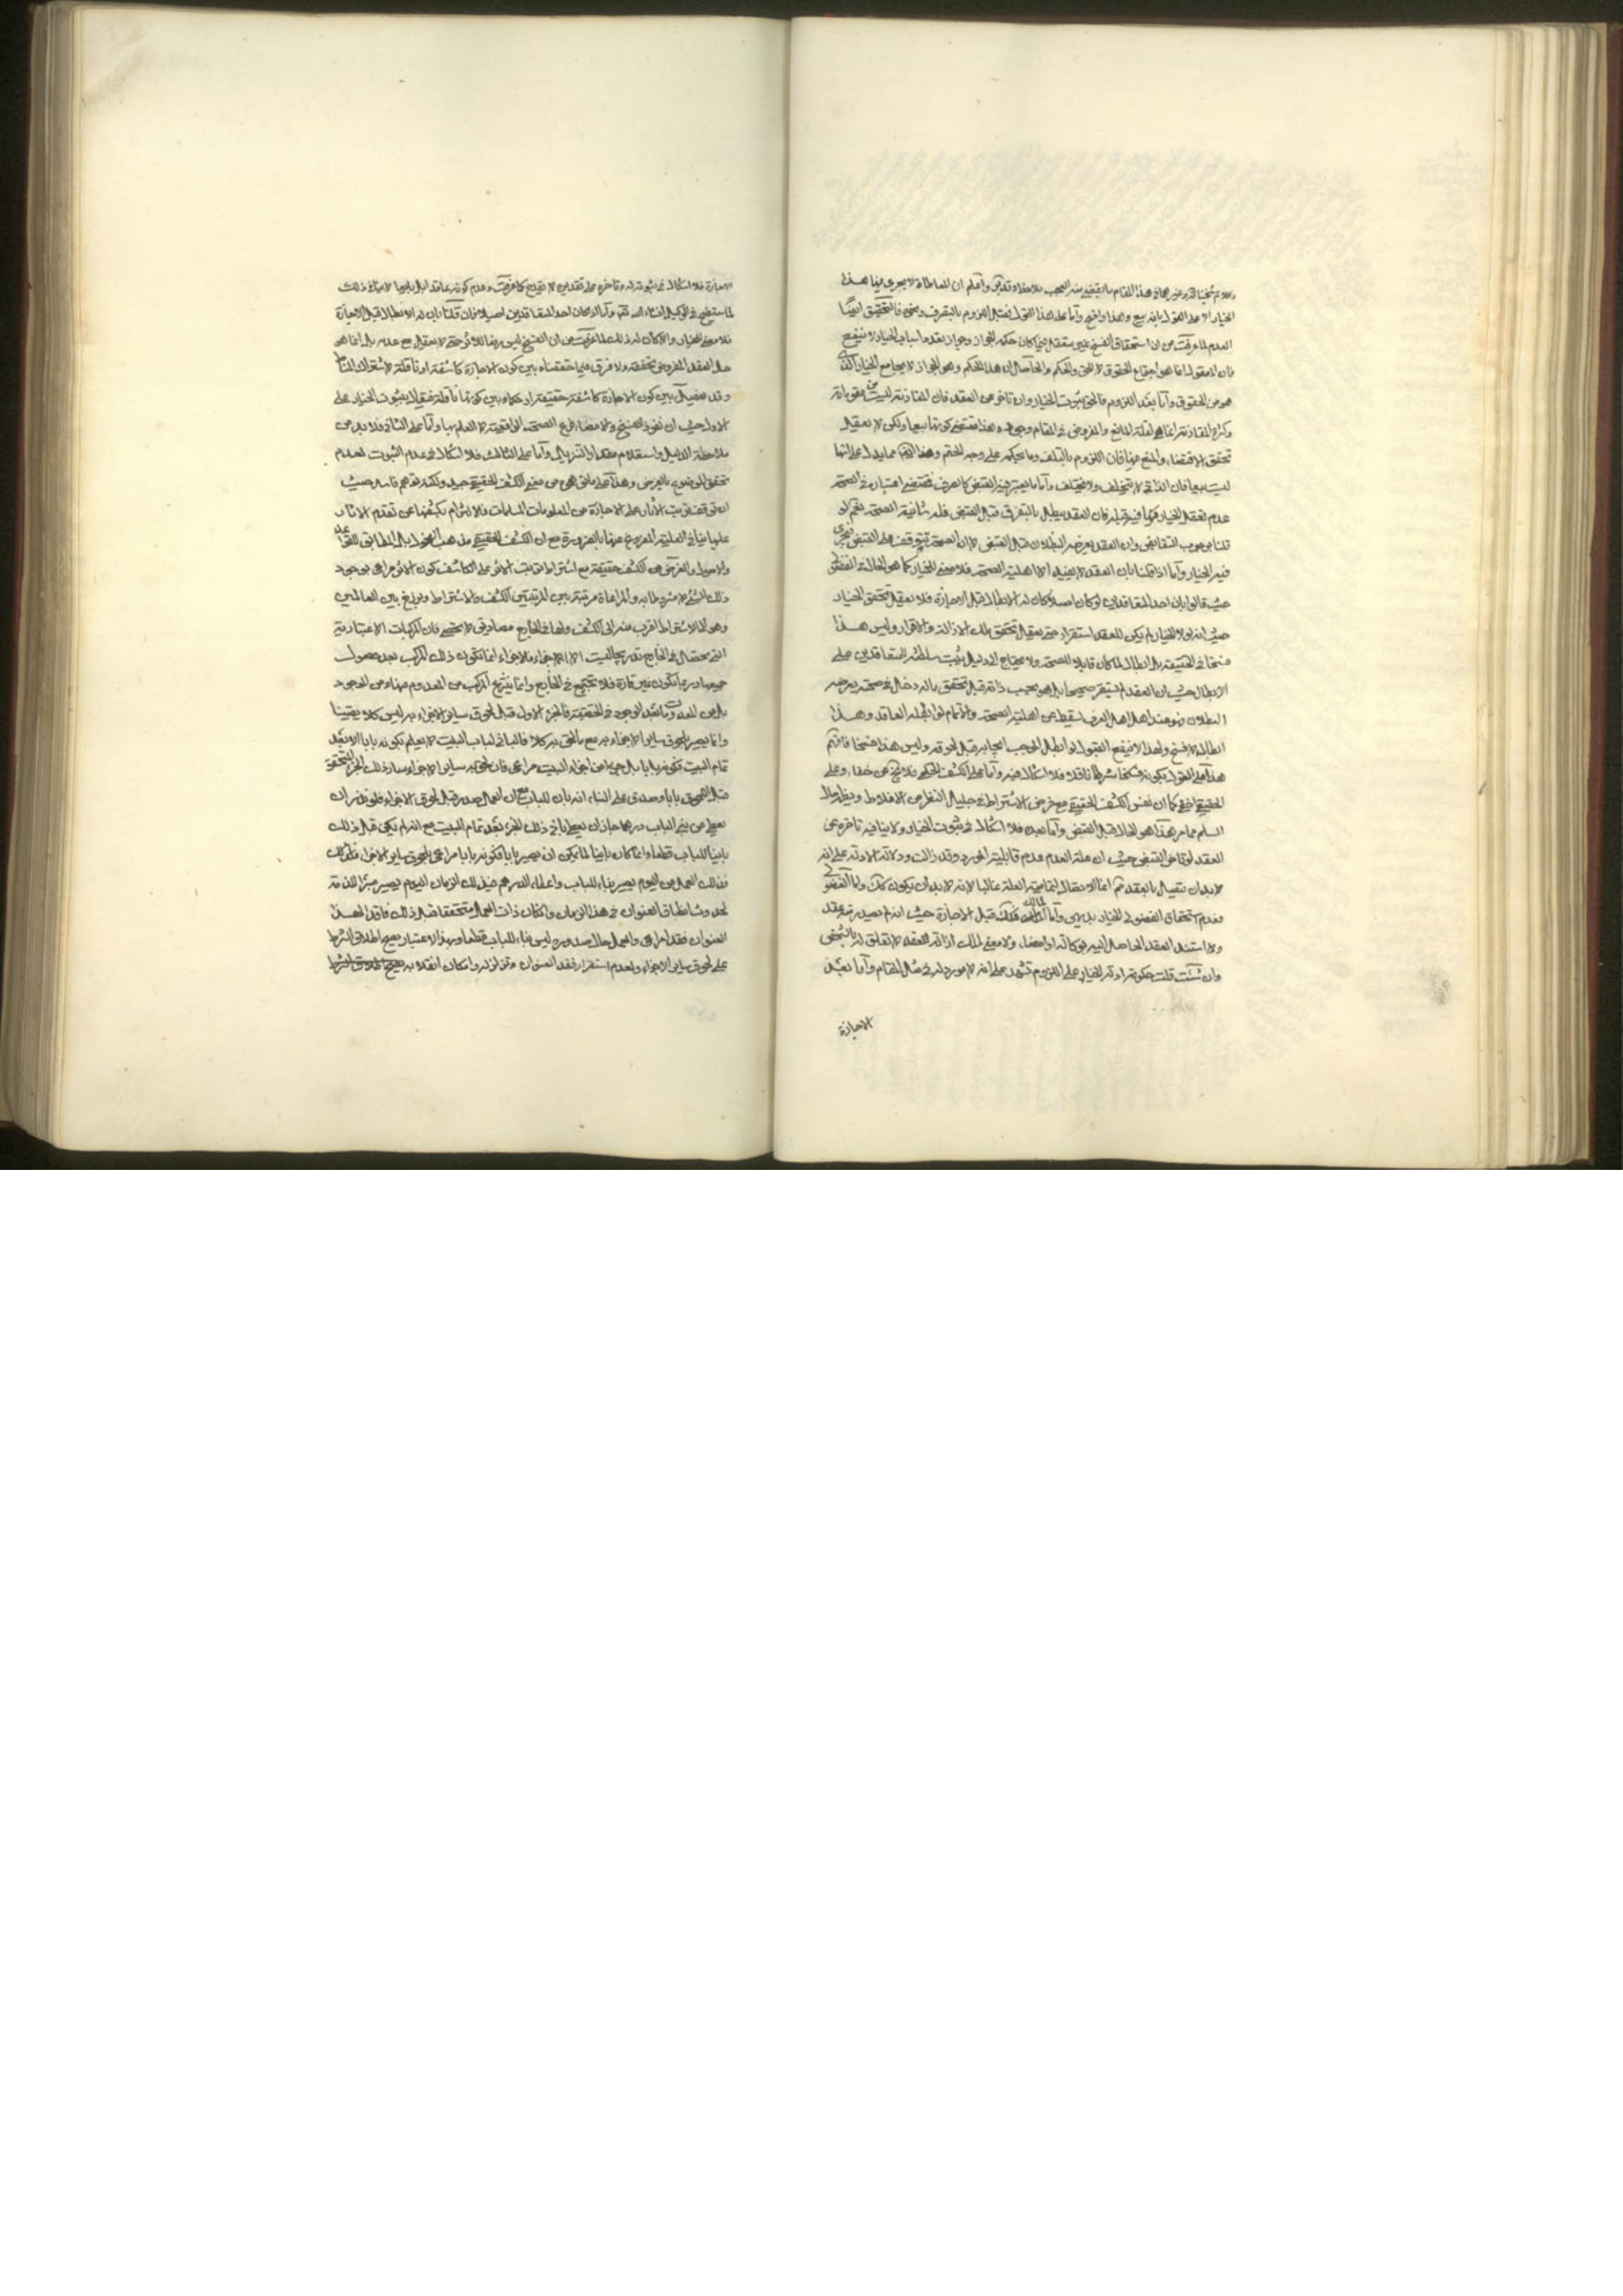 وكلام شيخنا قده وغيره في هذا المقام ما يقضي منه العجب فلاحظ وتدبر واعلم ان المعاطاة لا يجري فيها هذا
الخيار الا على القول بانه بيع وهذا واضح وأما على هذا القول فقبل اللزوم بالتصرف ونحوه فالتحقيق ايضا
العدم لما عرفت من ان استحقاق الفسخ غير متعقل فيما كان حكمه الجواز وجواز تعدد اسباب الخيار لا ينفع
فان المعقول انما هو اجتماع الحقوق لا الحق والحكم والحاصل ان هذا الحكم وهو الجواز لا يجامع الخيار الذي
هو من الحقوق وأما بعد اللزوم فالحق ثبوت الخيار وان تأخر عن العقد فان المقارنة ليست من مقوماته
وكثرة المقارنة انما هي لقلة المانع والمفروض في المقام وجوده وهذا مقتضى كونها بيعا ولكن لا يعقل
تحقق الاقتضاء والمنع منها فان اللزوم بالتلف وما بحكمه على وجه الحتم وهذا ايضا مما يدل على انها
ليست بيعا فان الذاتي لا يتخلف ولا يختلف وأما ما يعتبر فيه القبض كالصرف فمقتضى اعتباره في الصحة
عدم تعقل الخيار فيه قبله فان العقد يبطل بالتفرق قبل القبض فله شأنية الصحة نعم لو
قلنا بوجوب التقابض وان العقد يعرضه البطلان قبل القبض لا ان الصحة تتوقف على القبض فيجري
فيه الخيار وأما اذا قلنا بان العقد لا يفيد الا اهلية الصحة فلا معنى للخيار كما هو الحال في الفضولي
حيث قالوا بان احد المتعاقدين لو كان اصيلا كان له الابطال قبل الاجازة فلا يعقل تحقق الخيار
حيث انه لولا الخيار لم يكن للعقد استقرار حتى يعقل تحقق ملك الازالة والاقرار وليس هذا
فسخا في الحقيقة بل ابطال لما كان قابلا للصحة ولا يحتاج الى دليل يثبت سلطنة المتعاقدين على
الابطال حيث ان العقد لم يستقر صحيحا بل هو بحسب ذاته قبل تحقق ماله دخل في صحته يعرضه
البطلان فهو عند اهل العرف سقيط عن اهلية الصحة والاتمام لو ابطله العاقد وهذا
ابطال لا فسخ ولهذا لا ينفع القبول لو ابطل الموجب ايجابه قبل لحوقه وليس هذا فسخا فافهم
هذا على القول بكونه شرطا ناقلا فلا اشكال فيه وأما على الكشف الحكمي فلا يخ من خفاء وعلى
الحقيقي اخفى كما ان نفس الكشف الحقيقي مع فرض الاشتراط في جليل النظر من الاغلاط ويظهر حال
السلم مما مر هذا هو الحال قبل القبض وأما بعده فلا اشكال في ثبوت الخيار ولا ينافيه تأخره عن
العقد لو تأخر القبض حيث ان علة العدم عدم قابلية المورد وقد زالت ودلالة الادلة على انه
لا بد ان يتصل بالعقد ثم انما الاتصال لتمامية العلة غالبا لا انه لا بد ان يكون كك وأما الفضولي
فعدم استحقاق الفضولي للخيار بديهي وأما المالك فكك قبل الاجازة حيث انه لم يصدر منه عقد
ولا استند العقد الحاصل اليه بوكالة او امضاء ولا معنى لملك ازالة العقد لا تعلق له بالشخص
وان شئت قلت حكومة ادلة الخيار على اللزوم تشهد على انه لا مورد له في مثل المقام وأما بعد
الاجازة
الاجازة فلا اشكال في ثبوته له وتأخره على تقديره لا يقدح كما عرفت وعدم كونه عاقدا بل بايعا لا ينافي ذلك
لما ستضح في الوكيل انشاء الله تعالى وأما اذا كان احد المتعاقدين اصيلا فان قلنا بان له الابطال قبل الاجازة
فلا معنى للخيار والا كان له ذلك لما عرفت من ان الفسخ ليس رفعا للاثر حتى لا يعقل مع عدمه بل انما هو
حل العقد المفروض تحققه ولا فرق فيما حققناه بين كون الاجازة كاشفة او ناقلة لاشتراك المناط
وقد يفصل بين كون الاجازة كاشفة حقيقة او حكما وبين كونها ناقلة فيقال بثبوت الخيار على
الاول حيث ان نفوذ الفسخ والامضاء فرع الصحة الواقعية لا العلم بها وأما على الثاني فلا بد من
ملاحظة الدليل واستعلام مقدار التنزيل وأما على الثالث فلا اشكال في عدم الثبوت لعدم
تحقق الموضوع بالفرض وهذا على ما توهم من معنى الكشف الحقيقي جيد ولكنه توهم فاسد حيث
ان توقف ترتب الآثار على الاجازة من المعلومات المسلمات فالالتزام بكشفها عن تقدم الآثار
عليها ينافي العلية المفروغ عنها بالضرورة مع ان الكشف الحقيقي مذهب الفحول بل المطابق للقواعد
والاصول والغرض من الكشف حقيقة مع اشتراط ترتب الاثر على الكاشف كون الاثر مراعى بوجود
ذلك الشيء لا مشروطا به والمراعاة مرتبة بين المرتبتين الكشف والاشتراط وبرزخ بين العالمين
وهو الى الاشتراط اقرب منه الى الكشف ولها في الخارج مصاديق لا تحصى فان المركبات الاعتبارية
التي تحصل في الخارج تدريجا ليست الا الاجزاء فالاجزاء انما تكون ذلك المركب بعد حصول
جميعها وربما تكون غير قارة فلا تجتمع في الخارج وانما ينتزع المركب من المعدوم منها ومن الموجود
بل من المعدومات بعد الوجود في الحقيقة فالجزء الاول قبل لحوق سائر الاجزاء به ليس كلا يقينا
وانما يصير بلحوق سائر الاجزاء به مع ما لحق به كلا فالباني لباب البيت لا يعلم بكونه بابا الا بعد
تمام البيت فكونه بابا بل جزءا من اجزاء البيت مراعى فان لحق به سائر الاجزاء صار ذلك الجزء المتحقق
قبل اللحوق بابا وصدق على البناء انه بان للباب مع ان العمل صدر قبل لحوق الاجزاء فلو نذر ان
يعطي من بنى الباب درهما جاز ان يعطي باني ذلك الجزء بعد تمام البيت مع انه لم يكن قبل ذلك
بانيا للباب قطعا وانما كان بانيا لما يمكن ان يصير بابا فكونه بابا مراعى بلحوق سائر الاجزاء
فذلك العمل من اليوم يصير بناء للباب واعطاء الدرهم في ذلك الزمان اليوم يصير مبرئا للذمة
لحدوث انطباق العنوان في هذا الزمان وان كان ذات العمل متحققا قبل ذلك فاقدا لهذا
العنوان فقد امراعى والعمل حال صدوره ليس بناء للباب قطعا وبهذا الاعتبار يصح اطلاق الشرط
على لحوق سائر الاجزاء ولعدم استقرار فقد العنوان وتزلزله وامكان انقلابه